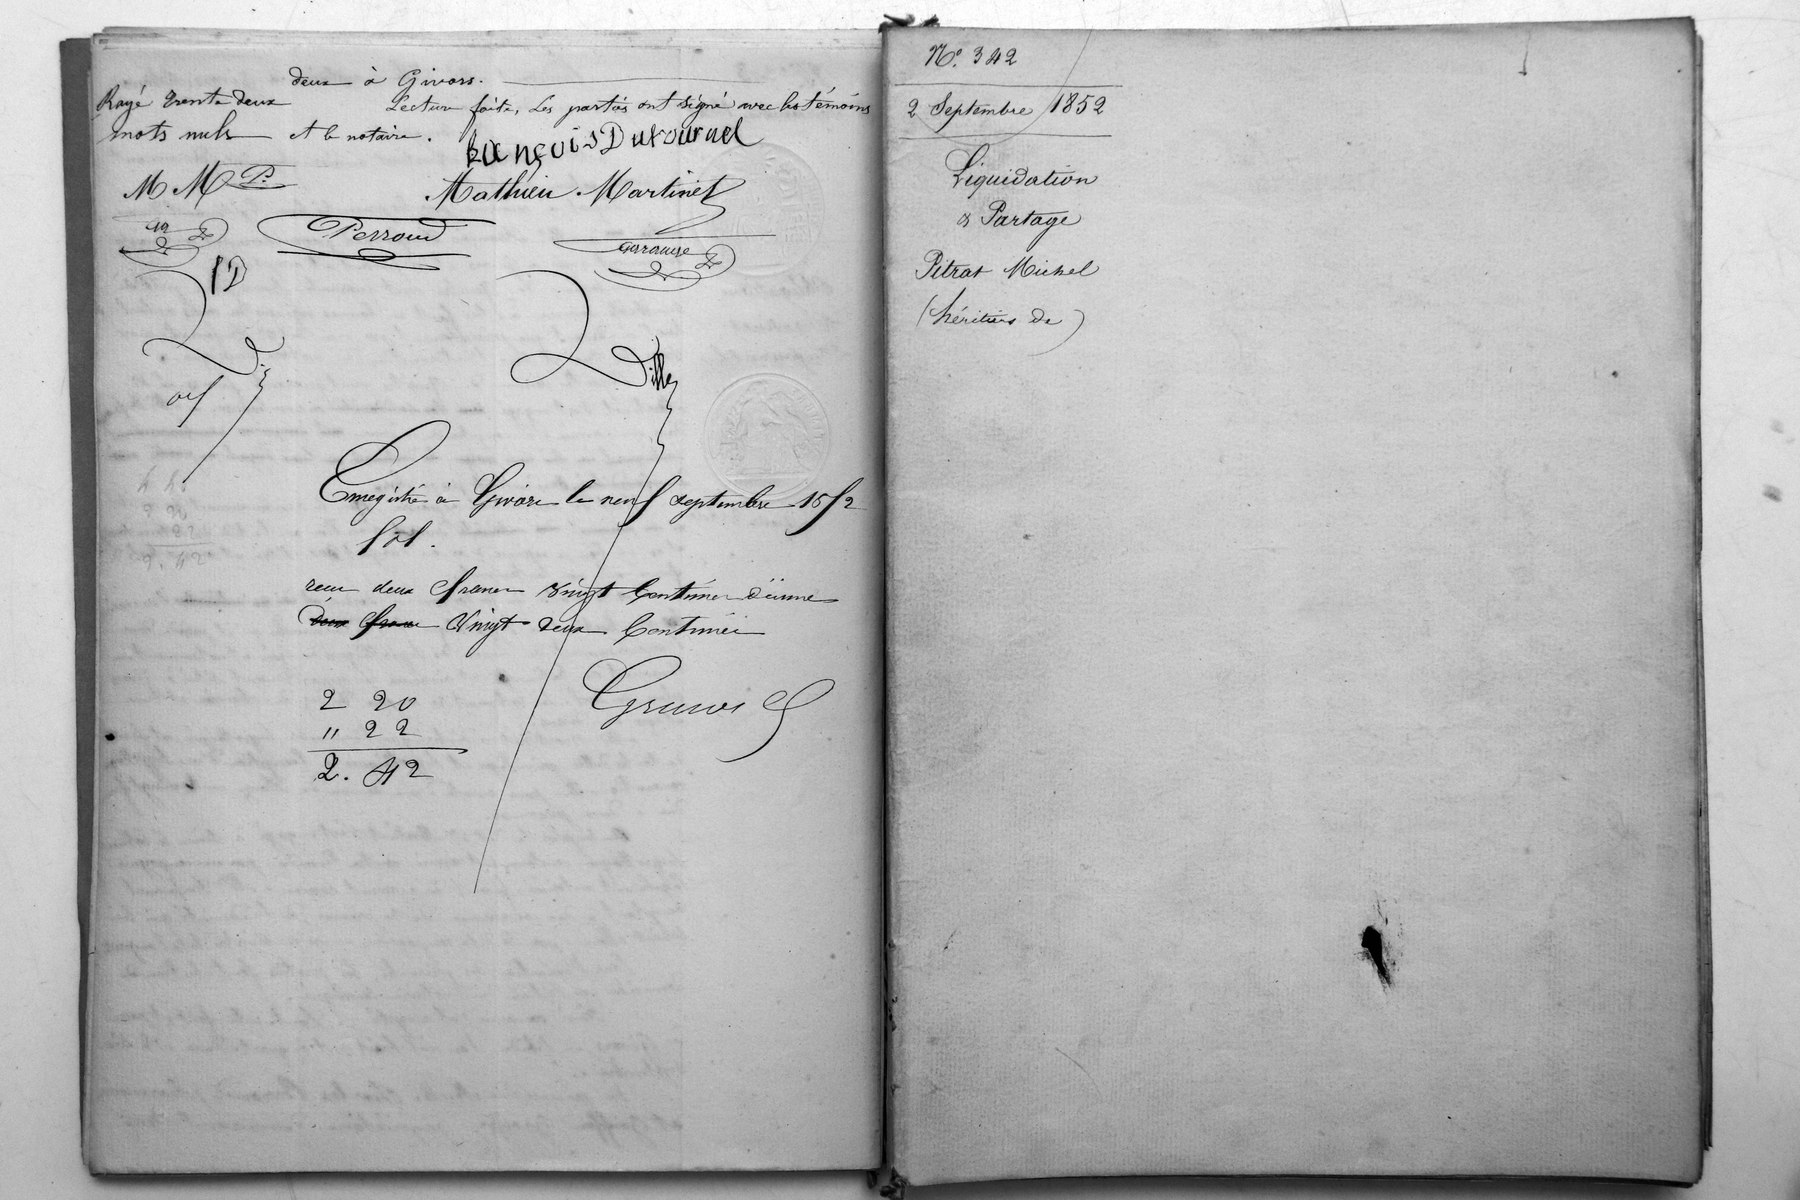 deux à Givors.
Rayé trente deux
mots nuls
Lecture faite, les parties ont signé avec les témoins
et le notaire.
François Dutournel
M M P.
Mathieu Martinet
Perroud
fD
Dille
Enregistré à Givors le neuf septembre 1852
fol.
recu deux francs vingt Centimes dixime
deux francs Vingt deux Centimes
2 20
" 22
2. 42
N.° 342
2 Septembre 1852
Liquidation
& Partage
Pitrat Michel
(héritiers de)